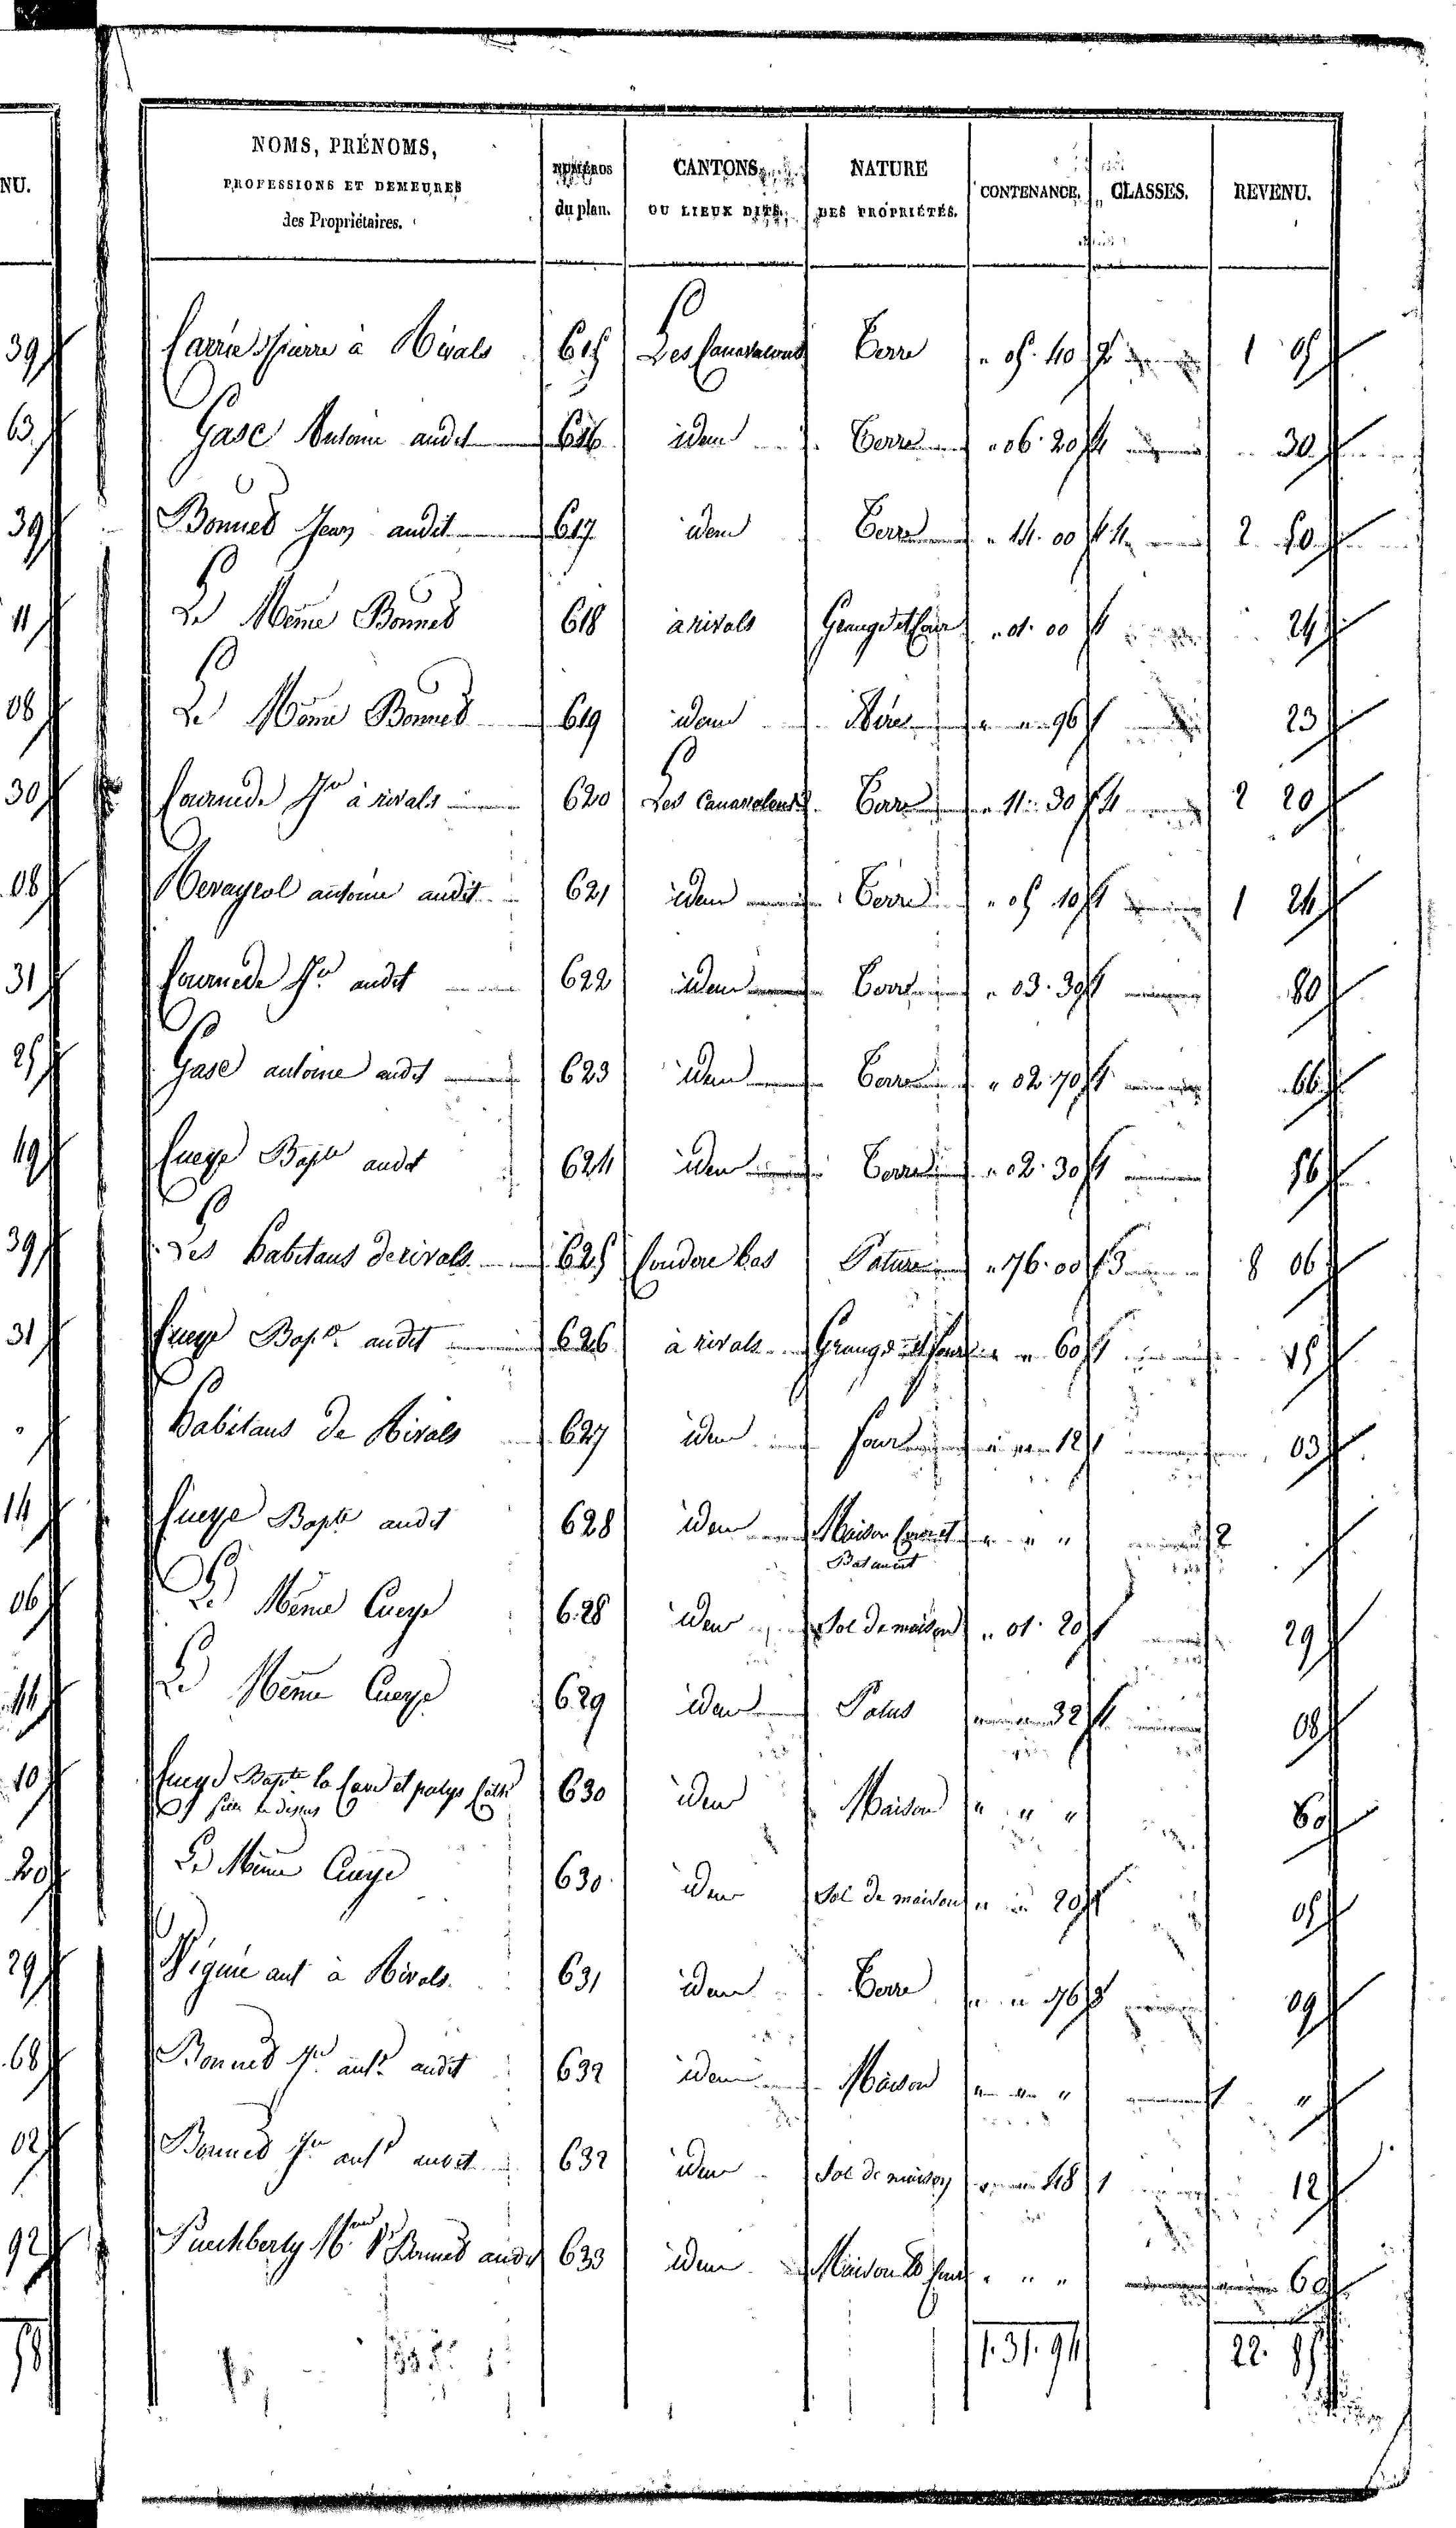 NU.
NOMS, PRÉNOMS,
PROFESSIONS ET DEMEURES
des Propriétaires.
NUMÉROS
du plan.
CANTONS
OU LIEUX DITS.
NATURE
DES PROPRIÉTÉS.
CONTENANCE.
CLASSES.
REVENU.
39 Carrié Pierre à Rivals 615 Les Terre " 05. 40 2 1 05
63 Gasc Antoine audit 616 idem Terre " 06. 20 4 30
39 Bonnet Jean audit 617 idem Terre " 14. 00 2 50
11 Le Même Bonnet 618 à rivals Grange et Cour " 01. 00 1 24
08 Le Même Bonnet 619 idem Aires " " 96 1 23
30 Cournede Jn à rivals 620 Les Terre " 11. 30 2 20
08 Nevayrol antoine audit 621 idem Terre " 05. 10 1 1 24
31 Cournede Jn audit 622 idem Terre " 03. 30 1 80
25 Gasc antoine audit 623 idem Terre " 02. 70 1 66
49 Cueye Bapte audit 624 idem Terre " 02. 30 1 56
39 Les habitans de rivals 625 Coudere bas Pature " 76. 00 3 8 06
31 Cueye Bapte audit 626 à rivals Grange et Cour " " 60 1 15
" habitans de Rivals 627 idem four " " 12 1 03
14 Cueye Bapte audit 628 idem Maison Cour et " " " 2
Batiment
06 Le Même Cueye 628 idem Sol de maison " 01. 20 1 29
44 Le Même Cueye 629 idem Patus " " 32 1 08
10 Cueye Bapte la Cave et 630 idem Maison " " " 60
dessus
20 Le Même Cueye 630 idem Sol de maison " " 20 1 05
29 Viguié ant à Rivals 631 idem Terre " " 76 3 09
68 Bonnet Jn ant audit 632 idem Maison " " " 1 "
02 Bonnet Jn ant audit 632 idem Sol de maison " " 48 1 12
92 Puechberty Vve Bonnet audit 633 idem Maison et Cour " " " 60
58 1. 31. 94 22. 85